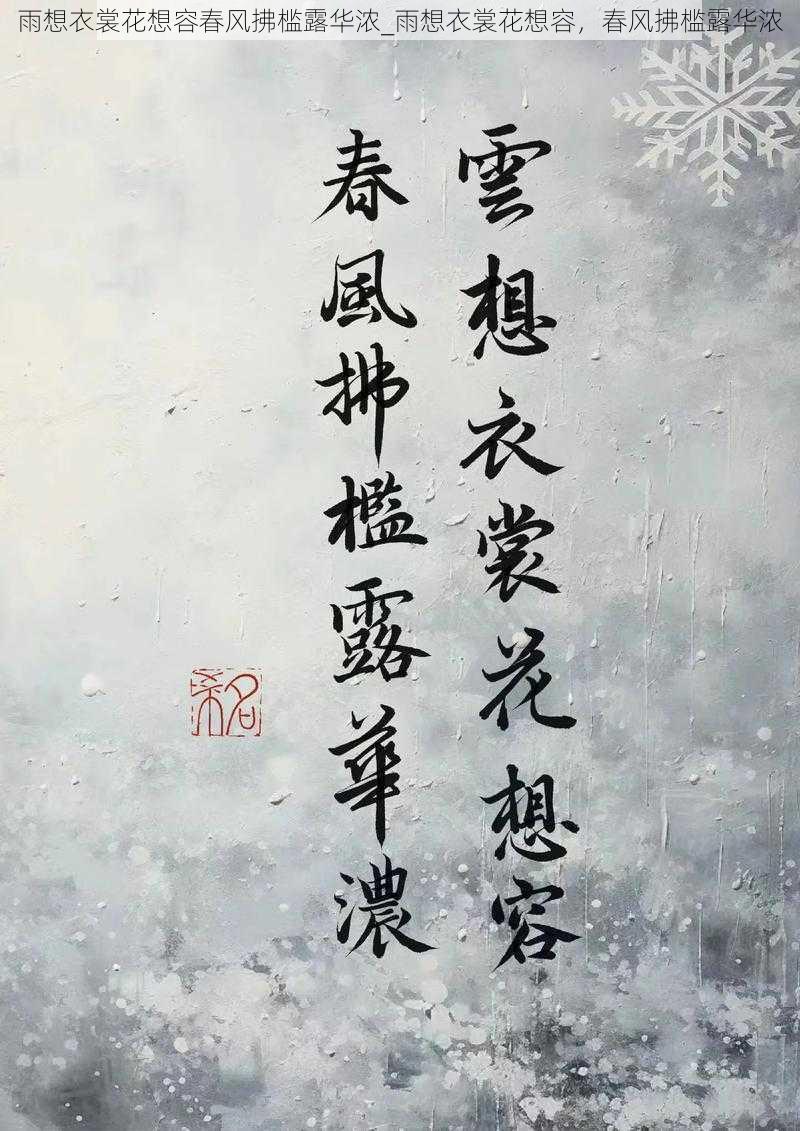 雨想衣裳花想容春风拂槛露华浓_雨想衣裳花想容，春风拂槛露华浓
雲想衣裳花想容
春風拂檻露華濃